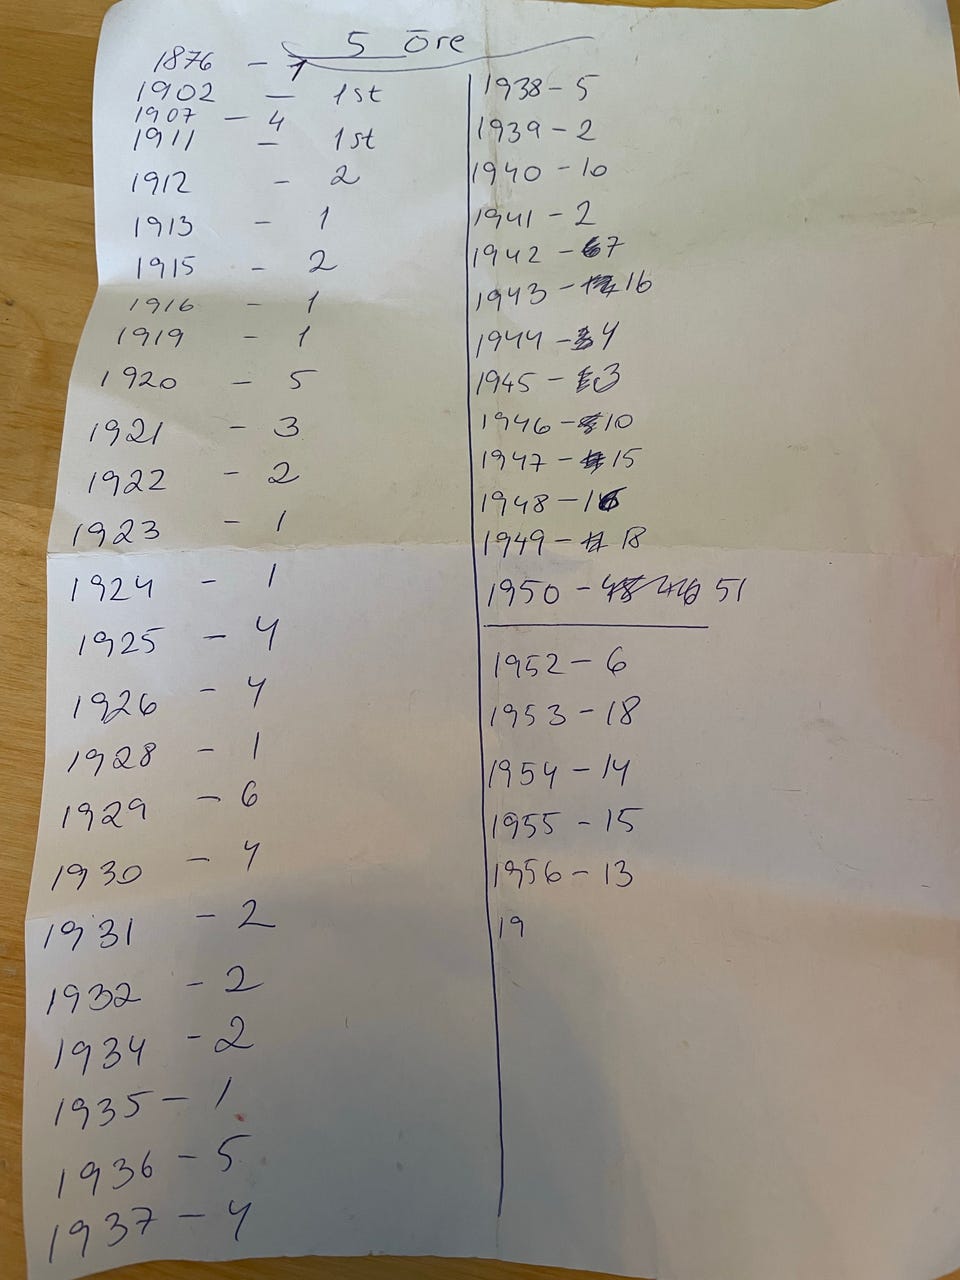 5 Öre
1876 - 1
1902 - 1st
1907 - 4
1911 - 1st
1912 - 2
1913 - 1
1915 - 2
1916 - 1
1919 - 1
1920 - 5
1921 - 3
1922 - 2
1923 - 1
1924 - 1
1925 - 4
1926 - 4
1928 - 1
1929 - 6
1930 - 4
1931 - 2
1932 - 2
1934 - 2
1935 - 1
1936 - 5
1937 - 4
1938 - 5
1939 - 2
1940 - 10
1941 - 2
1942 - 7
1943 - 16
1944 - 4
1945 - 3
1946 - 10
1947 - 15
1948 - 16
1949 - 18
1950 - 51
1952 - 6
1953 - 18
1954 - 14
1955 - 15
1956 - 13
19